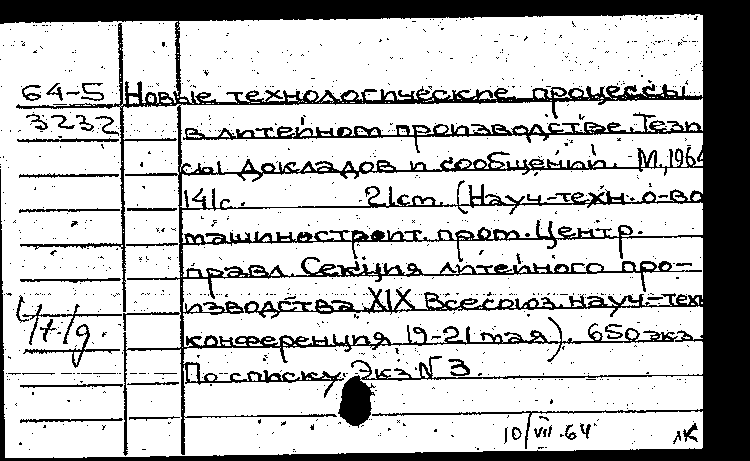 64-5 Новые технологические процессы
3232 в литейном производстве. Тези
сы докладов и сообщений. М., 1964
141с. 21см. (Науч.-техн. о-во
машиностроит. пром. Центр.
правл. Секция литейного про-
изводства XIX Всесоюз. науч.-техн
конференция 19-21 мая). 650 экз.
По списку. Экз N 3.
10/VII.64